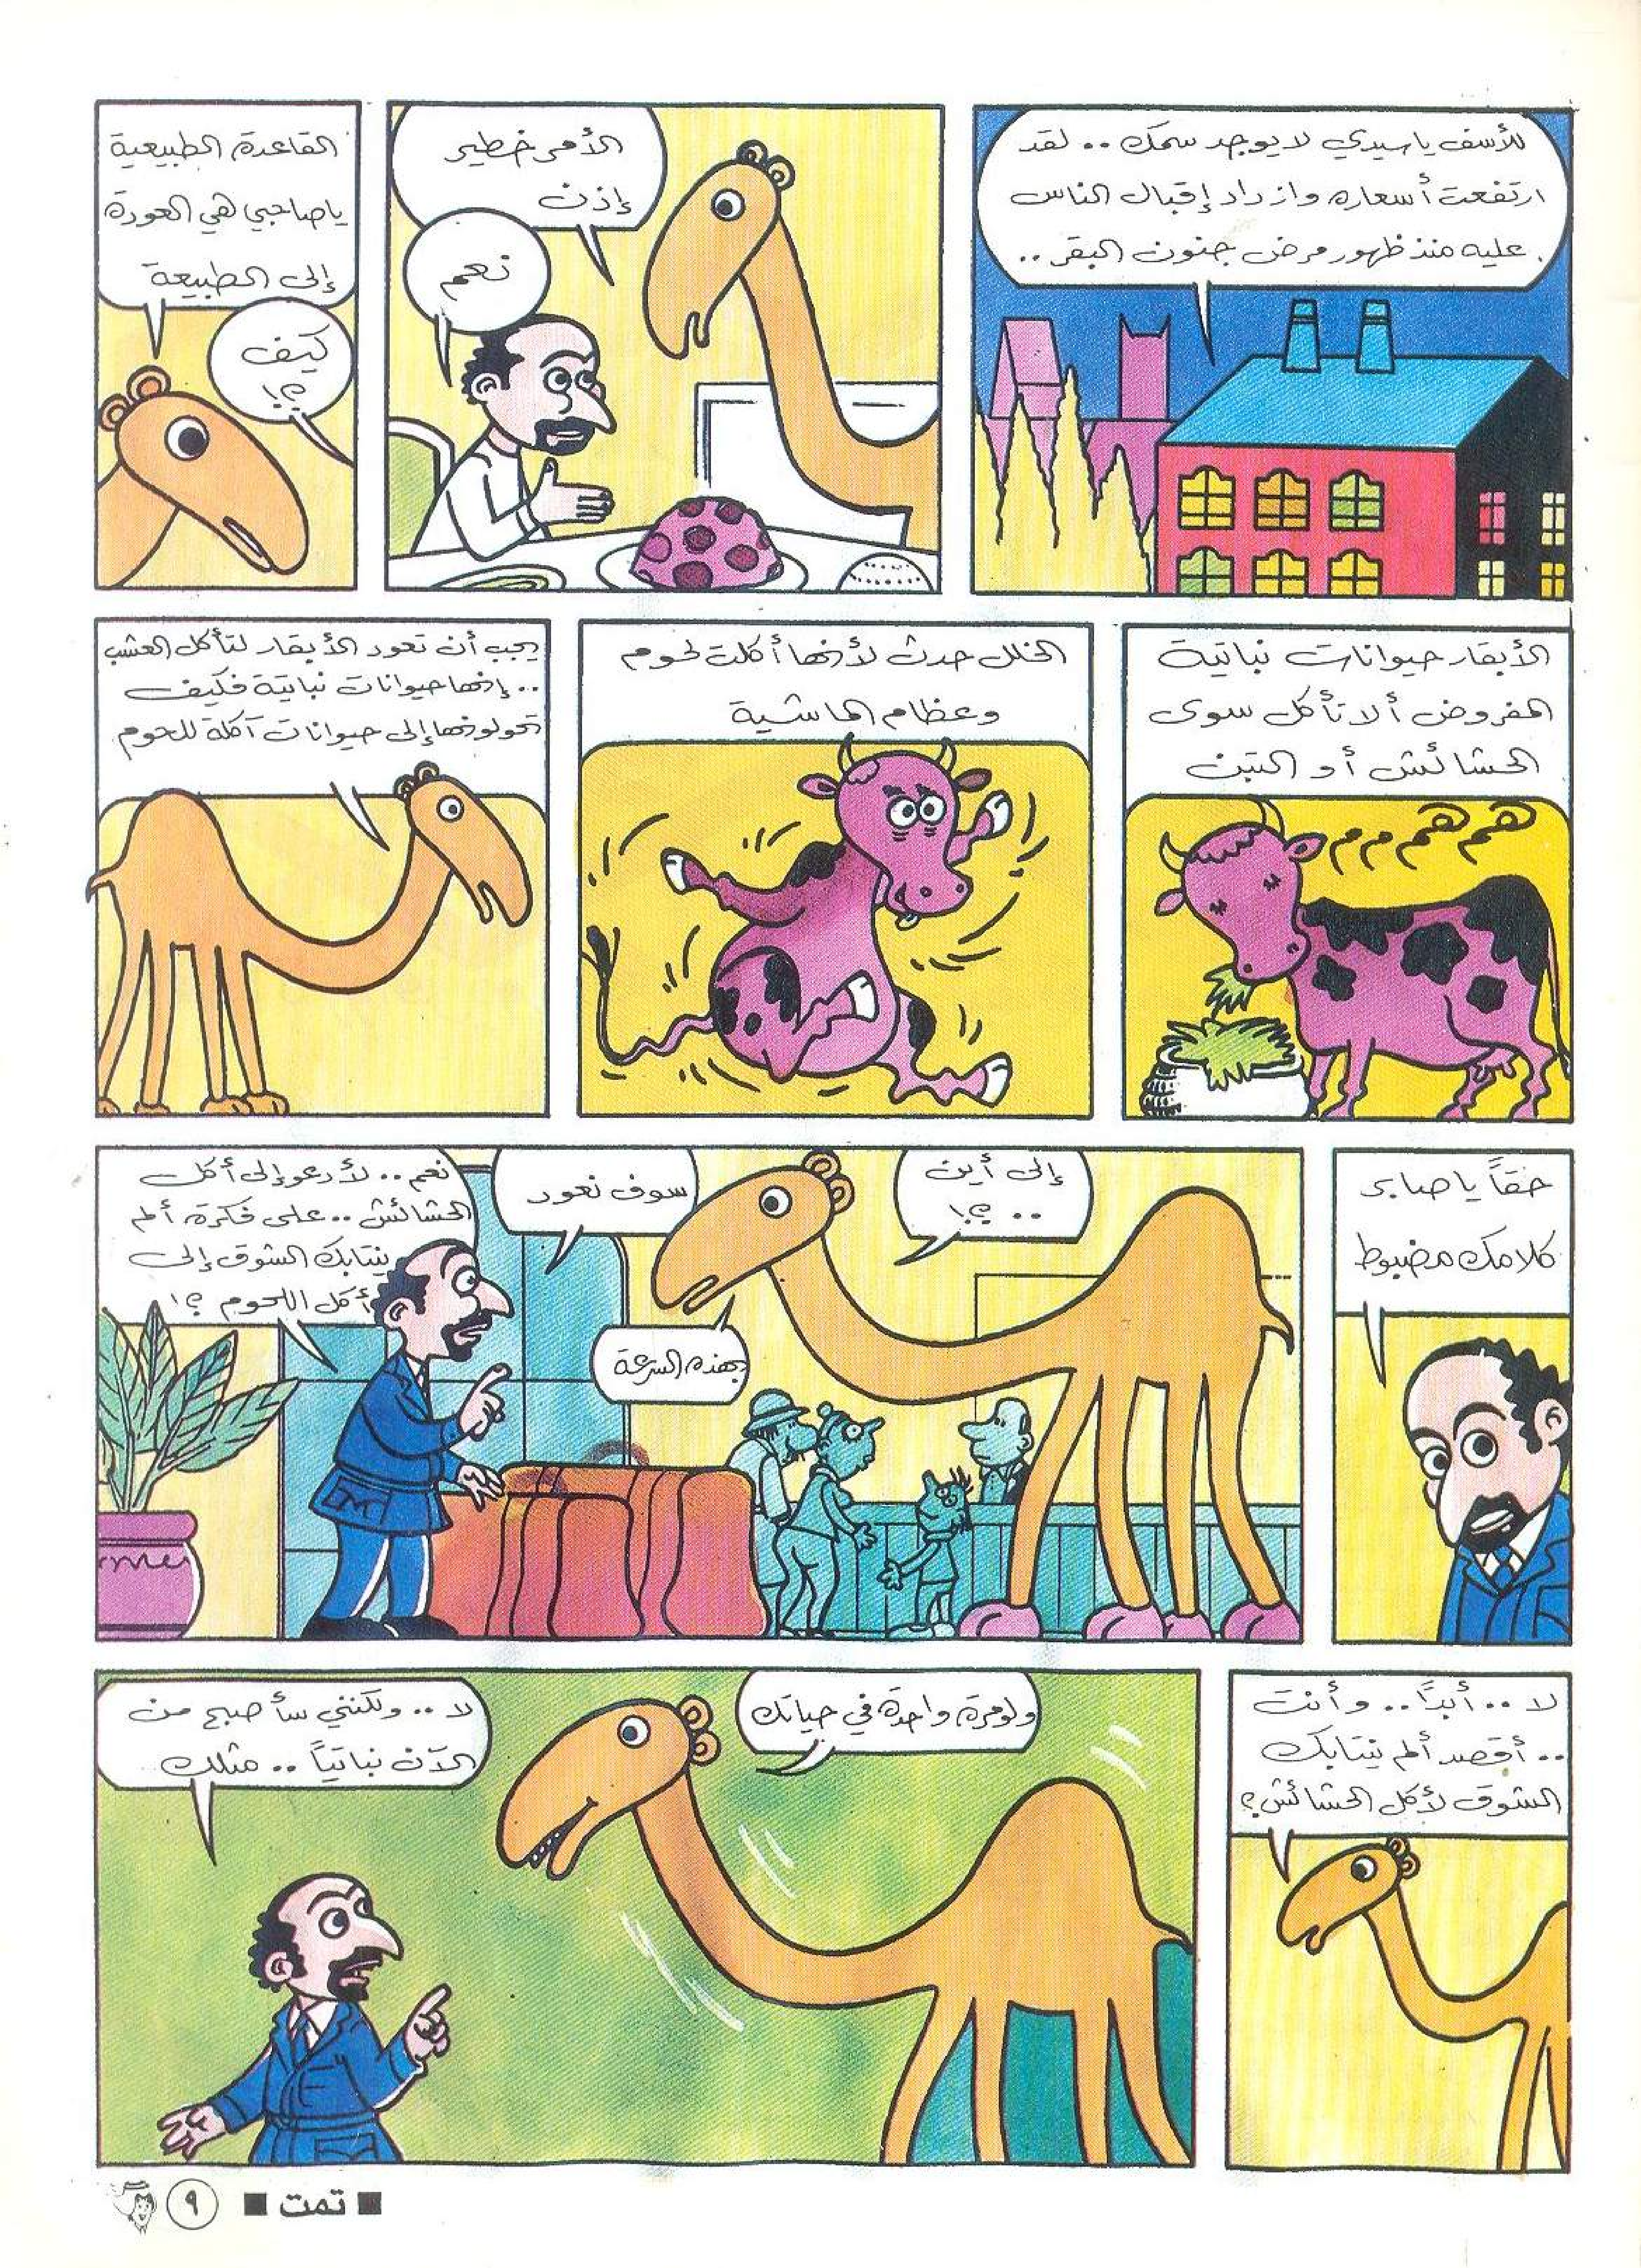 للأسف ياسيدي لا يوجد سمك .. لقد
ارتفعت أسعاره وازداد إقبال الناس
عليه منذ ظهور مرض جنون البقر ..
الأمر خطير
إذن
نعم
القاعدة الطبيعية
ياصاحبي هي العودة
إلى الطبيعة
كيف
؟!
الأبقار حيوانات نباتية
المفروض ألا تأكل سوى
الحشائش أو التبن
هم هم م م
الخلل حدث لأنها أكلت لحوم
وعظام الماشية
يجب أن تعود الأبقار لتأكل العشب
.. إنها حيوانات نباتية فكيف
تحولونها إلى حيوانات آكلة للحوم
حقاً يا صابر
كلامك مضبوط
إلى أين
.. ؟!
سوف نعود
بهذه السرعة
نعم .. لأدعو إلى أكل
الحشائش .. على فكرة ألم
ينتابك الشوق إلى
أكل اللحوم ؟!
لا .. أبداً .. وأنت
.. أقصد ألم ينتابك
الشوق لأكل الحشائش؟
ولو مرة واحدة في حياتك
لا .. ولكنني سأصبح من
الآن نباتياً .. مثلك
■ تمت ■
٩